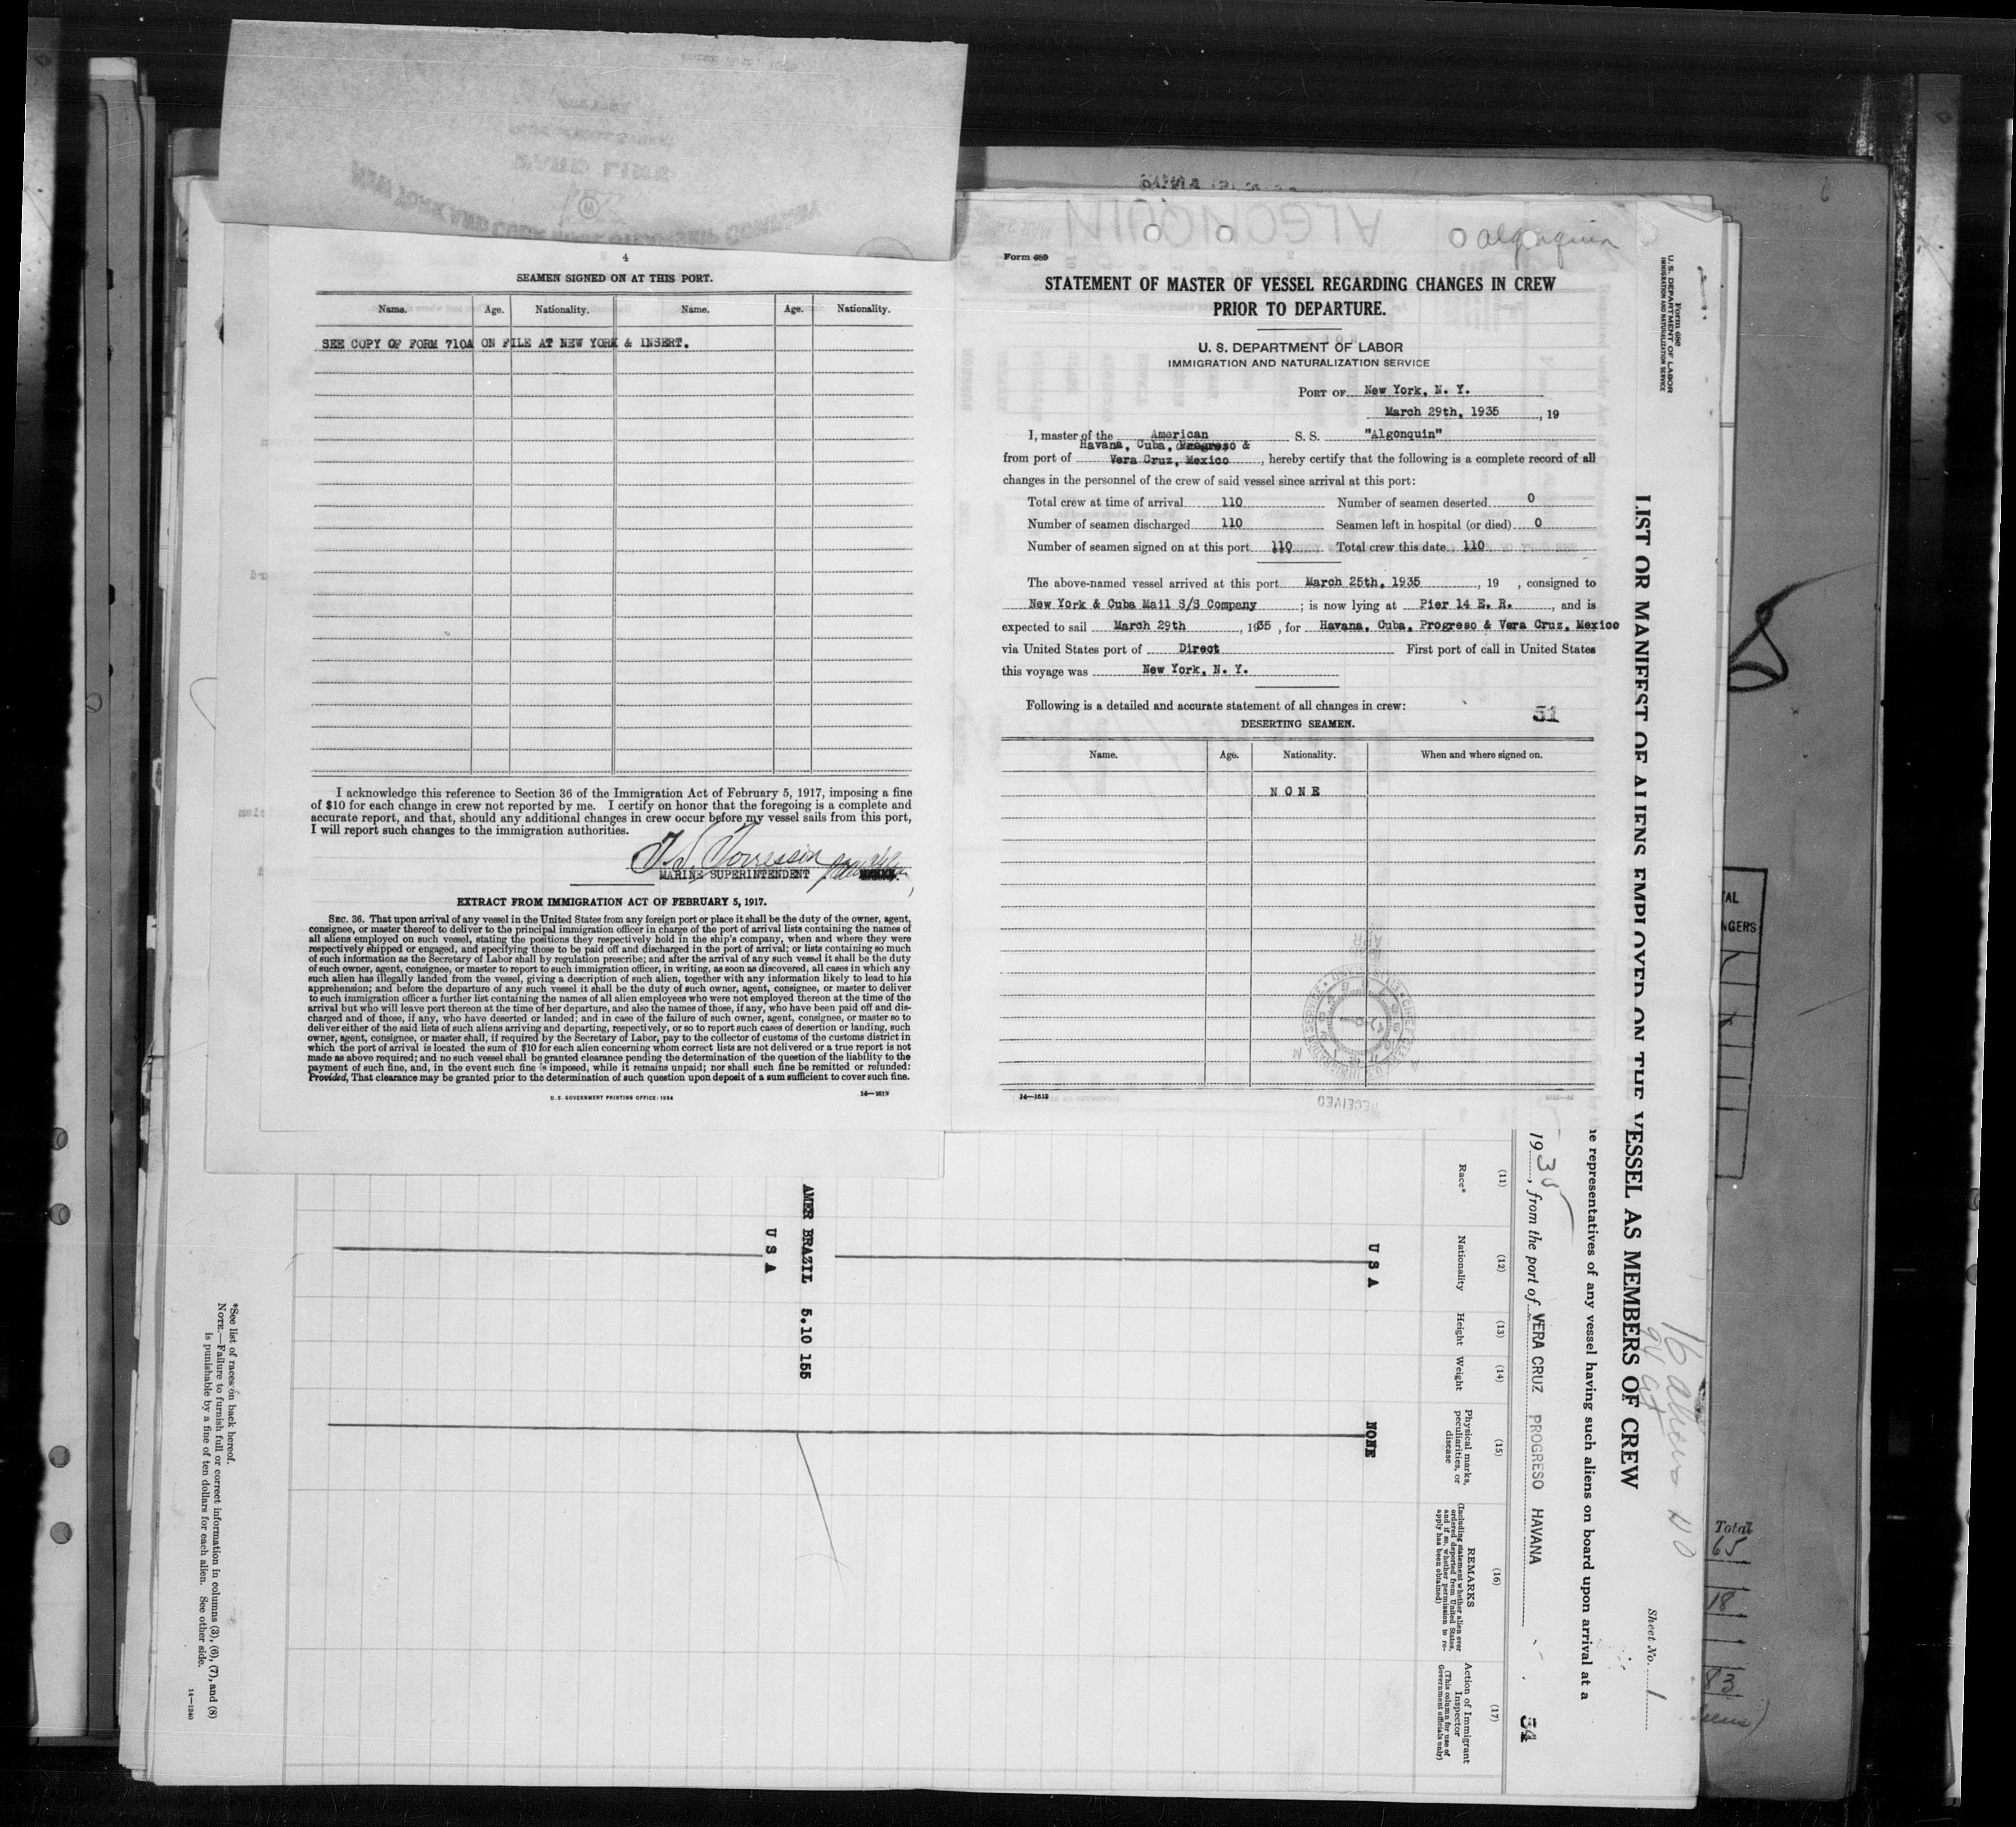 4
SEAMEN SIGNED ON AT THIS PORT.
Name. Age. Nationality. Name. Age. Nationality.
SEE COPY OF FORM 710A ON FILE AT NEW YORK & INSERT.
I acknowledge this reference to Section 36 of the Immigration Act of February 5, 1917, imposing a fine
of $10 for each change in crew not reported by me. I certify on honor that the foregoing is a complete and
accurate report, and that, should any additional changes in crew occur before my vessel sails from this port,
I will report such changes to the immigration authorities.
MARINE SUPERINTENDENT
EXTRACT FROM IMMIGRATION ACT OF FEBRUARY 5, 1917.
SEC. 36. That upon arrival of any vessel in the United States from any foreign port or place it shall be the duty of the owner, agent,
consignee, or master thereof to deliver to the principal immigration officer in charge of the port of arrival lists containing the names of
all aliens employed on such vessel, stating the positions they respectively hold in the ship's company, when and where they were
respectively shipped or engaged, and specifying those to be paid off and discharged in the port of arrival; or lists containing so much
of such information as the Secretary of Labor shall by regulation prescribe; and after the arrival of any such vessel it shall be the duty
of such owner, agent, consignee, or master to report to such immigration officer, in writing, as soon as discovered, all cases in which any
such alien has illegally landed from the vessel, giving a description of such alien, together with any information likely to lead to his
apprehension; and before the departure of any such vessel it shall be the duty of such owner, agent, consignee, or master to deliver
to such immigration officer a further list containing the names of all alien employees who were not employed thereon at the time of the
arrival but who will leave port thereon at the time of her departure, and also the names of those, if any, who have been paid off and dis-
charged and of those, if any, who have deserted or landed; and in case of the failure of such owner, agent, consignee, or master so to
deliver either of the said lists of such aliens arriving and departing, respectively, or so to report such cases of desertion or landing, such
owner, agent, consignee, or master shall, if required by the Secretary of Labor, pay to the collector of customs of the customs district in
which the port of arrival is located the sum of $10 for each alien concerning whom correct lists are not delivered or a true report is not
made as above required; and no such vessel shall be granted clearance pending the determination of the question of the liability to the
payment of such fine, and, in the event such fine is imposed, while it remains unpaid; nor shall such fine be remitted or refunded:
Provided, That clearance may be granted prior to the determination of such question upon deposit of a sum sufficient to cover such fine.
U. S. GOVERNMENT PRINTING OFFICE: 1934 14—1613
Algonquin
Form 689
STATEMENT OF MASTER OF VESSEL REGARDING CHANGES IN CREW
PRIOR TO DEPARTURE.
U. S. DEPARTMENT OF LABOR
IMMIGRATION AND NATURALIZATION SERVICE
PORT OF New York, N. Y.
March 29th, 1935, 19
I, master of the American S. S. "Algonquin"
Havana, Cuba, Progreso &
from port of Vera Cruz, Mexico, hereby certify that the following is a complete record of all
changes in the personnel of the crew of said vessel since arrival at this port:
Total crew at time of arrival 110 Number of seamen deserted 0
Number of seamen discharged 110 Seamen left in hospital (or died) 0
Number of seamen signed on at this port 110 Total crew this date 110
The above-named vessel arrived at this port March 25th, 1935, 19 , consigned to
New York & Cuba Mail S/S Company; is now lying at Pier 14 E. R., and is
expected to sail March 29th, 1935, for Havana, Cuba, Progreso & Vera Cruz, Mexico
via United States port of Direct First port of call in United States
this voyage was New York, N. Y.
Following is a detailed and accurate statement of all changes in crew:
51
DESERTING SEAMEN.
Name. Age. Nationality. When and where signed on.
NONE
14—1613
Form 680
U. S. DEPARTMENT OF LABOR
IMMIGRATION AND NATURALIZATION SERVICE
LIST OR MANIFEST OF ALIENS EMPLOYED ON THE VESSEL AS MEMBERS OF CREW
Sheet No. 1
representatives of any vessel having such aliens on board upon arrival at a
1935, from the port of VERA CRUZ PROGRESO HAVANA
34
(11) (12) (13) (14) (15) (16) (17)
Race* Nationality Height Weight Physical marks, peculiarities, or disease
REMARKS
(Including statement whether alien ever ordered deported from United States, and if so, whether permission to reapply has been obtained)
Action of Immigrant Inspector
(This column for use of Government officials only)
U S A NONE
AMER BRAZIL 5.10 155
U S A
*See list of races on back hereof.
NOTE.—Failure to furnish full or correct information in columns (3), (6), (7), and (8)
is punishable by a fine of ten dollars for each alien. See other side.
14—1240
Total
65
18
83